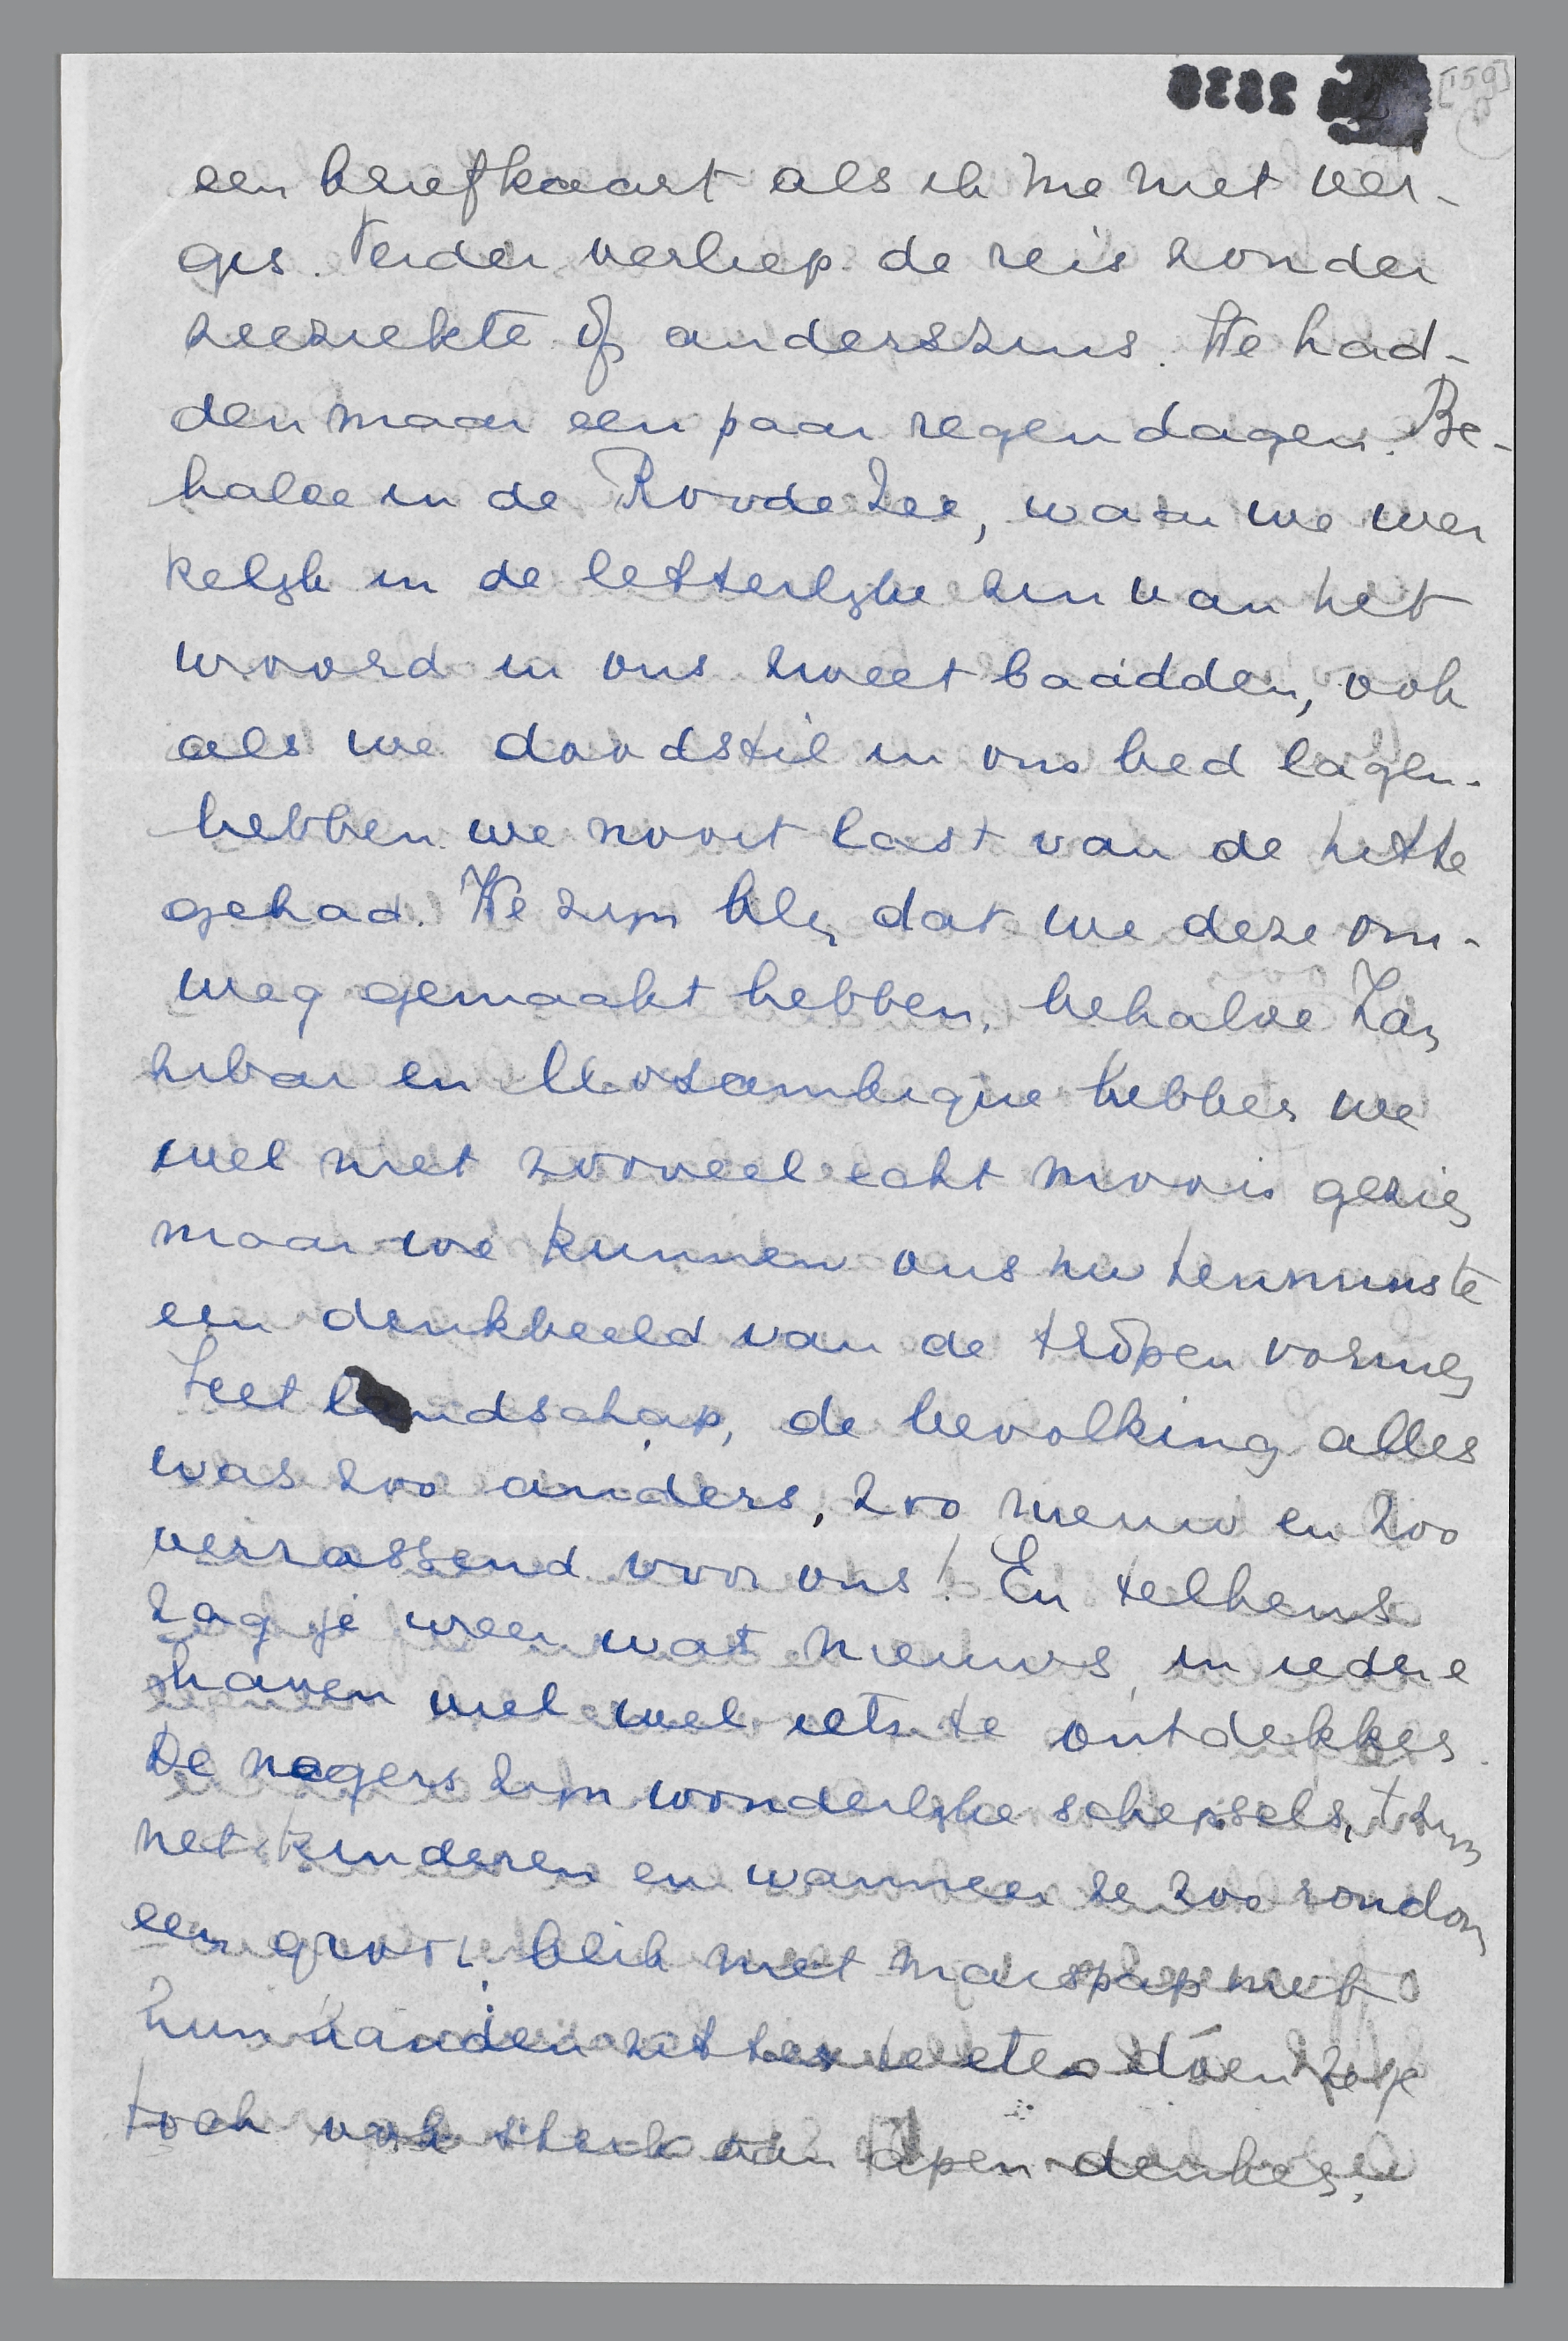 [159]
een briefkaart als ik me niet ver-
gis. Verder verliep de reis zonder
zeeziekte of anderszins. We had-
den maar een paar regendagen. Be-
halve in de Roode Zee, waar we wer
kelijk in de letterlijke zin van het
woord in ons zweet baadden, ook
als we doodstil in ons bed lagen.
hebben we nooit last van de hitte
gehad. We zijn blij dat we deze om-
weg gemaakt hebben, behalve Zan
zibar en Mozambique hebben we
wel niet zooveel echt moois gezien
maar we kunnen ons nu tenminste
een denkbeeld van de tropen vormen
Het landschap, de bevolking alles
was zoo anders, zoo nieuw en zoo
verrassend voor ons! En telkens
zag je weer wat nieuws, in iedere
haven viel wel iets te ontdekken.
De negers zijn wonderlijke schepsels, 't zijn
net kinderen en wanneer ze zoo rondom
een groot blik met maispap met
hun handen zitten te eten dóen ze je
toch ook sterk aan apen denken.